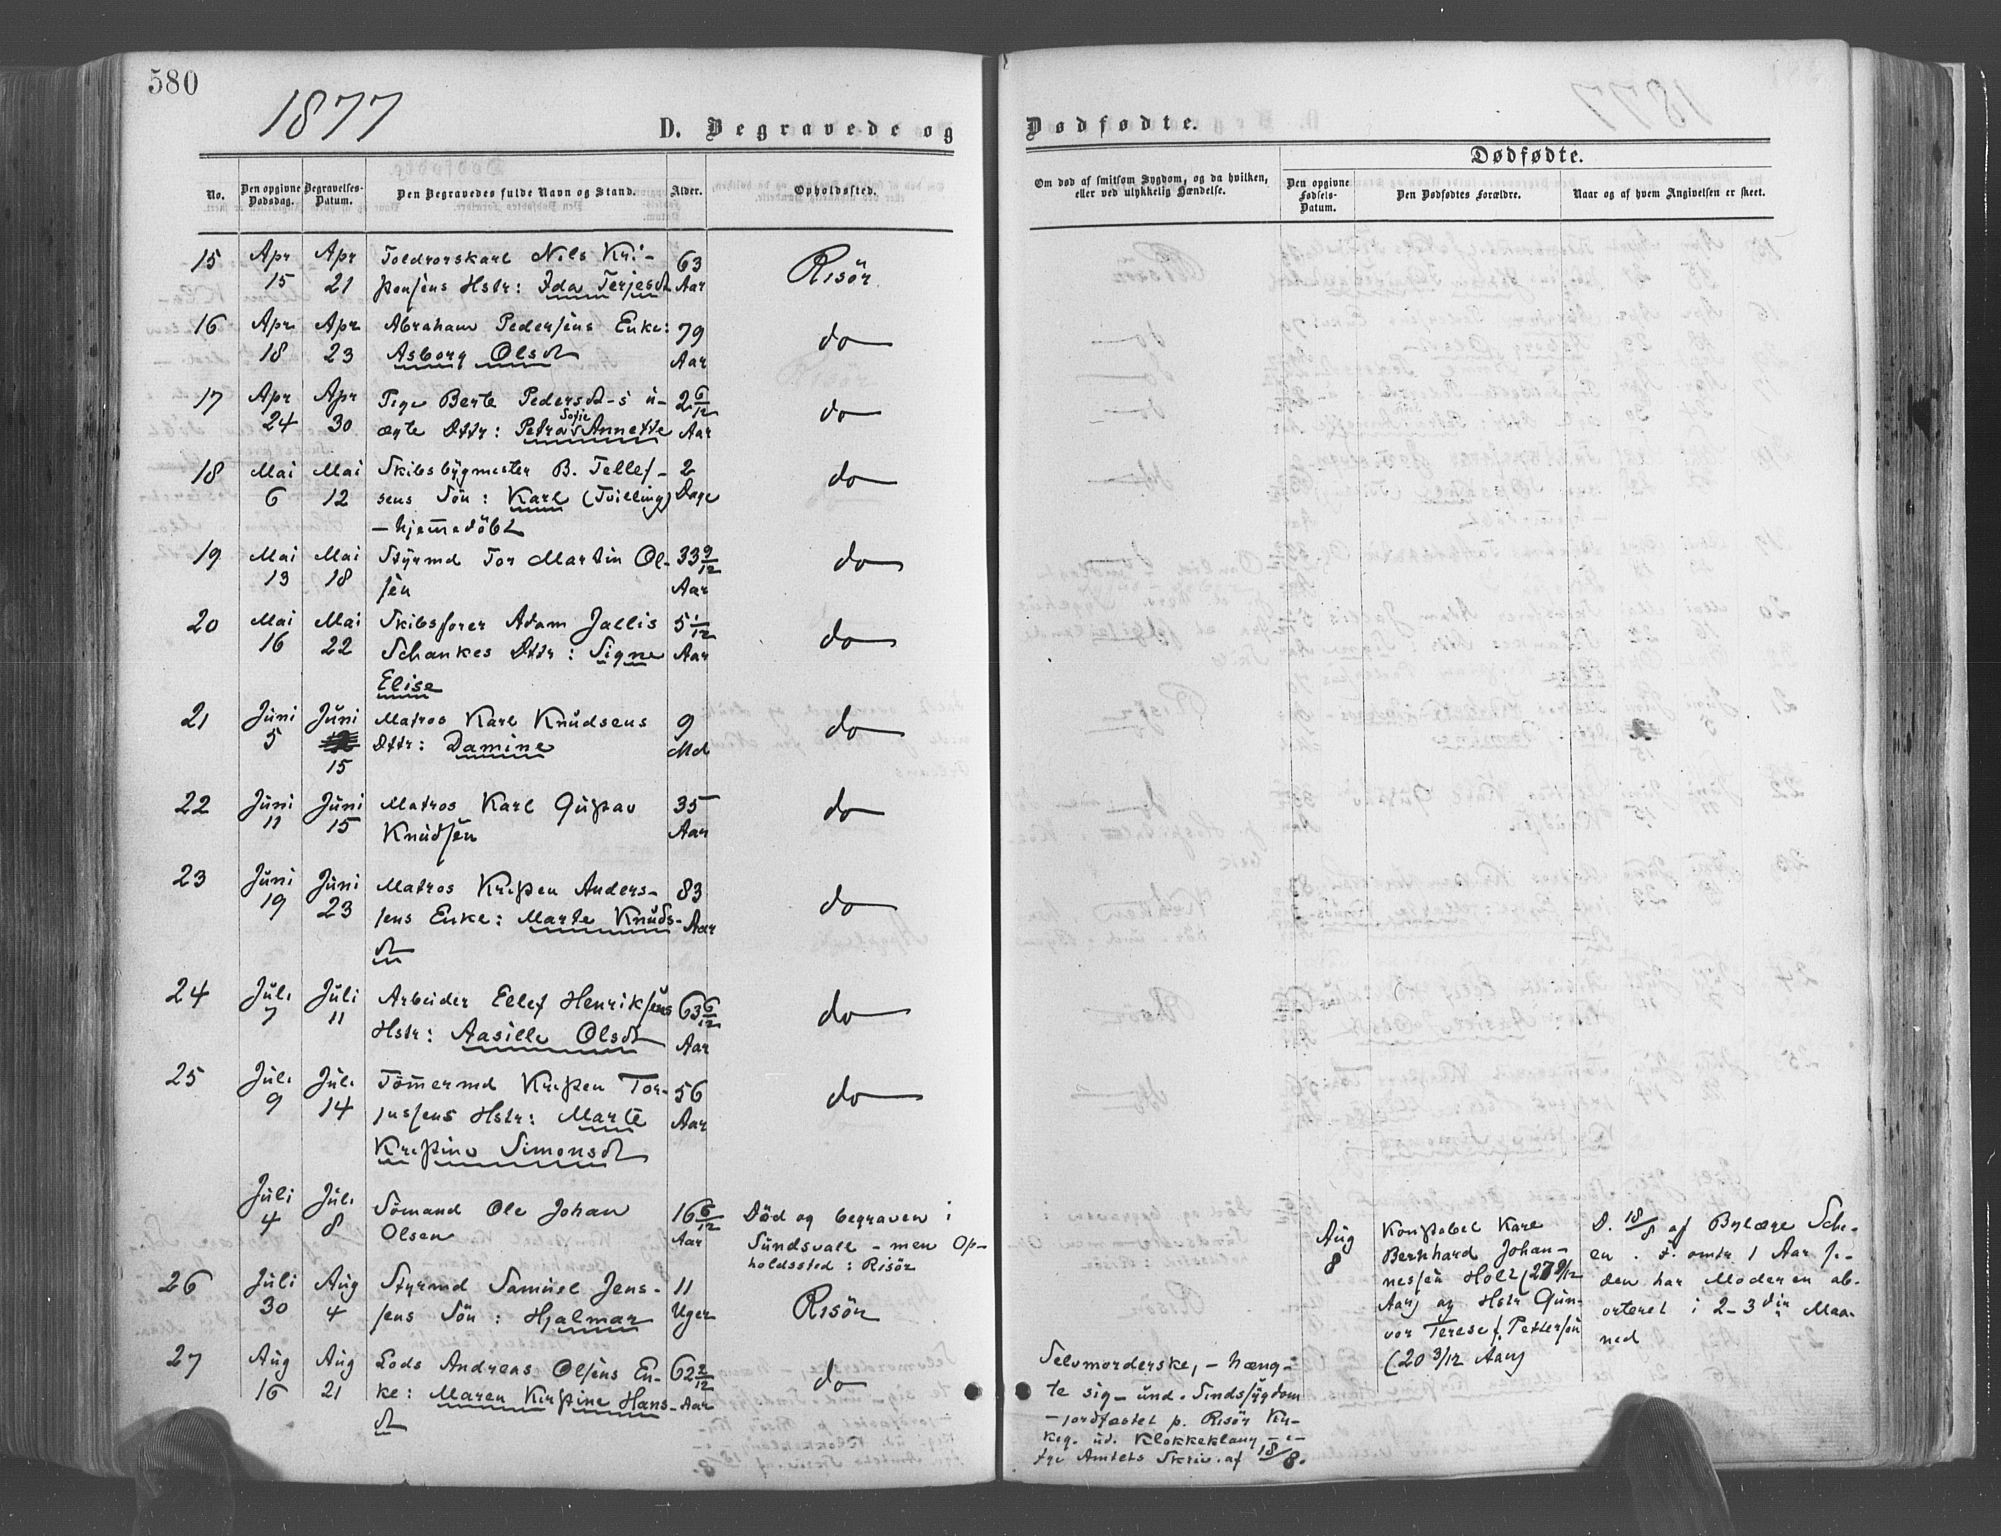 580
1877
D. Begravede og
No.
Den opgivne Dødsdag.
Begravelses-Datum.
Den Begravedes fulde Navn og Stand.
Alder.
Opholdssted.
15 Apr Apr Toldrorskarl Nils Kri- 63 Risör
15 21 stensens Hstr: Ida Terjesdt Aar
16 Apr Apr Abraham Pedersens Enke: 79 do
18 23 Asborg Olsdt Aar
17 Apr Apr Pige Berte Pedersdt-s u- 2 6/12 do
24 30 ægte Dttr: Petra Sofie Annette Aar
18 Mai Mai Skibsbygmester B. Tellef- 2 do
6 12 sens Sön: Karl (Tvilling) Dage
- hjemedöbt
19 Mai Mai Styrmd Tor Martin Ol- 33 9/12 do
13 18 sen Aar
20 Mai Mai Skibsförer Adam Jallis 5 1/12 do
16 22 Schankes Dttr: Signe Aar
Elise
21 Juni Juni Matros Karl Knudsens 9 do
5 Dttr: Damine Md
15
22 Juni Juni Matros Karl Gustav 35 do
11 15 Knudsen Aar
23 Juni Juni Matros Kristen Anders- 83 do
19 23 sens Enke: Marte Knuds- Aar
dt
24 Juli Juli Arbeider Ellef Henriksens 63 6/12 do
7 11 Hstr: Aasille Olsdt Aar
25 Juli Juli Tömermd Kristen Tor- 56 do
9 14 jussens Hstr: Marte Aar
Kristine Simonsdt
Juli Juli Sömand Ole Johan 16 6/12 Död og begraven i
4 8 Olsen Aar Sundsvall - men Op-
holdssted: Risör
26 Juli Aug Styrmd Samuel Jens- 11 Risör
30 4 sens Sön: Hjalmar Uger
27 Aug Aug Lods Andreas Olsens En- 62 2/12 do
16 21 ke: Maren Kristine Hans- Aar
dt
Dødfødte.
Om død af smitsom Sygdom, og da hvilken,
eller ved ulykkelig Hændelse.
Dødfødte.
Den opgivne Fødsels-Datum.
Den Dødfødtes Forældre.
Naar og af hvem Angivelsen er skeet.
Aug Konstabel Karl D. 18/8 af Bylæge Sche-
8 Bernhard Johan- en. omtr 1 Aar si-
nessen Holt (27 9/12 den har Moderen ab-
Aar) og Hstr Gun- orteret i 2-3die Maa-
vor Terese f. Pettersen ned
(20 3/12 Aar)
Selvmorderske, - hæng-
te sig - und. Sindssygdom
- jordfæstet p. Risör Kir-
keg. ud. Klokkeklang - e-
ftr Amtets Skriv. af 18/8.